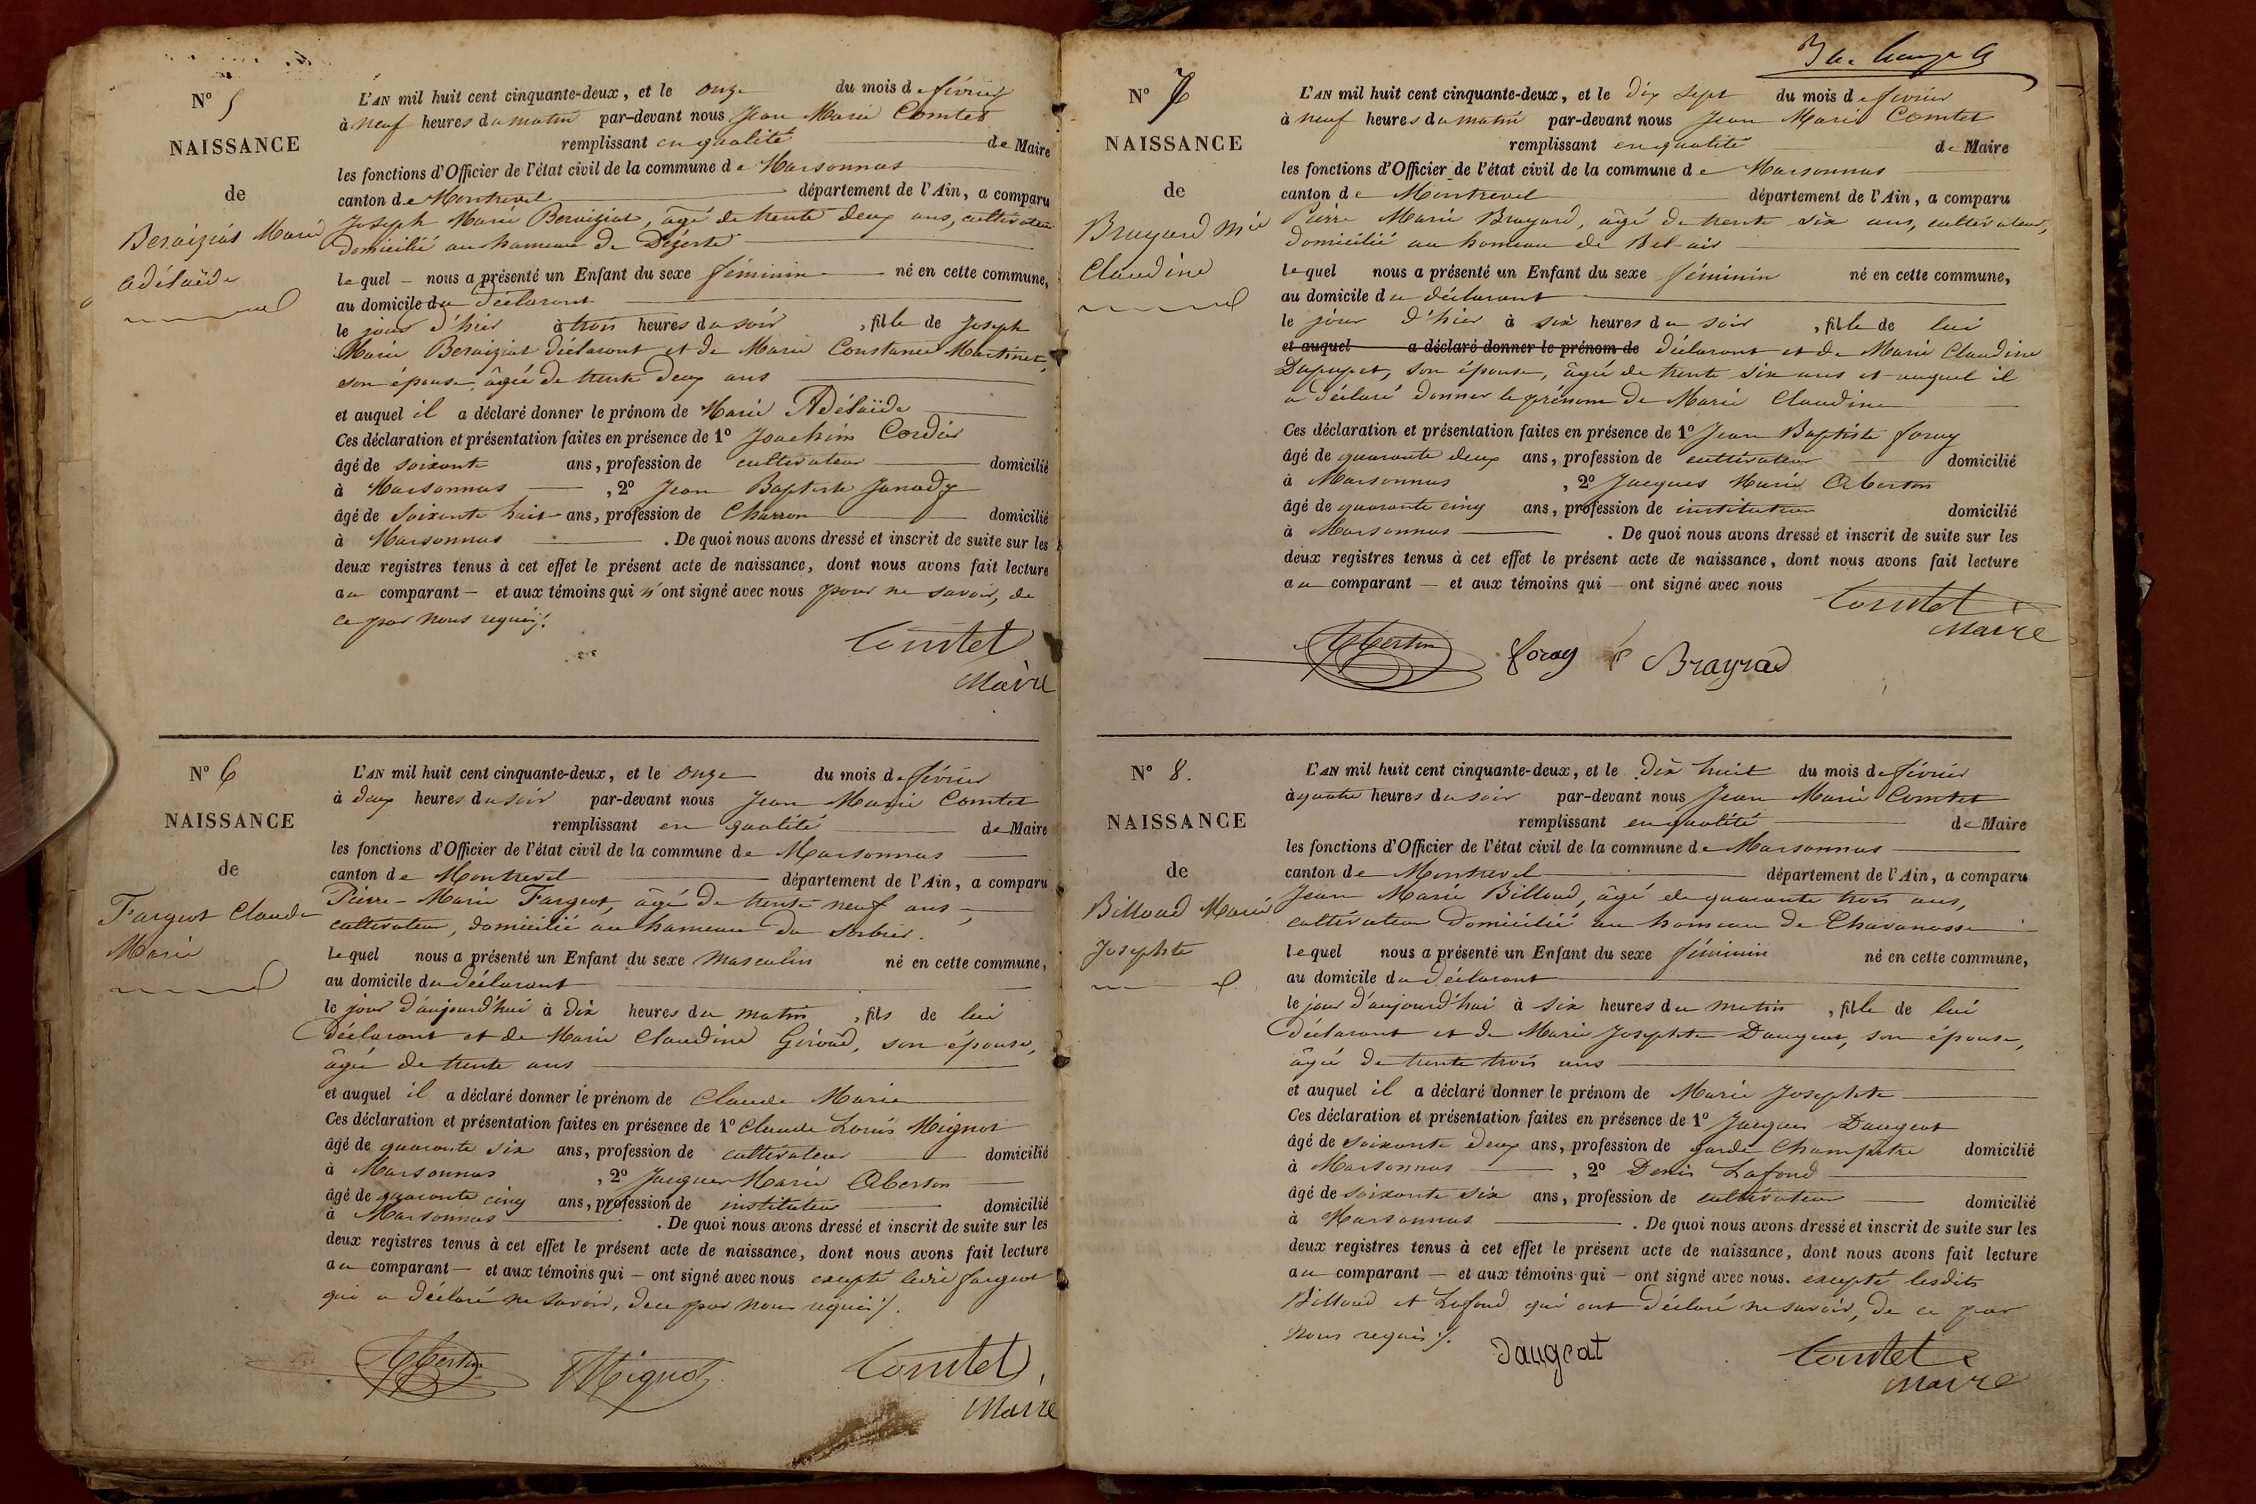 N° 5
NAISSANCE
de
Beraiziat Marie
Adélaïde
L'AN mil huit cent cinquante-deux, et le onze du mois de février
à neuf heures du matin par-devant nous Jean Marie Comtet
remplissant en qualité de Maire
les fonctions d'Officier de l'état civil de la commune de Marsonnas
canton de Montrevel département de l'Ain, a comparu
Joseph Marie Beraiziat, âgé de trente deux ans, cultivateur
domicilié au hameau de
le quel nous a présenté un Enfant du sexe féminin né en cette commune,
au domicile du déclarant
le jour d'hier à trois heures du soir, fille de Joseph
Marie Beraiziat déclarant et de Marie Constance Martinet,
son épouse, âgée de trente deux ans
et auquel il a déclaré donner le prénom de Marie Adélaïde
Ces déclaration et présentation faites en présence de 1° Joachim Cordier
âgé de soixante ans, profession de cultivateur domicilié
à Marsonnas, 2° Jean Baptiste
âgé de soixante huit ans, profession de Charron domicilié
à Marsonnas. De quoi nous avons dressé et inscrit de suite sur les
deux registres tenus à cet effet le présent acte de naissance, dont nous avons fait lecture
au comparant et aux témoins qui n'ont signé avec nous pour ne savoir, de
ce par nous requis.
Comtet
Maire
N° 6
NAISSANCE
de
Fargeot Claude
Marie
L'AN mil huit cent cinquante-deux, et le onze du mois de février
à deux heures du soir par-devant nous Jean Marie Comtet
remplissant en qualité de Maire
les fonctions d'Officier de l'état civil de la commune de Marsonnas
canton de Montrevel département de l'Ain, a comparu
Pierre-Marie Fargeot, âgé de trente neuf ans,
cultivateur, domicilié au hameau du Sorbier.
le quel nous a présenté un Enfant du sexe masculin né en cette commune,
au domicile du déclarant
le jour d'aujourd'hui à dix heures du matin, fils de lui
déclarant et de Marie Claudine Giroud, son épouse,
âgée de trente ans
et auquel il a déclaré donner le prénom de Claude Marie
Ces déclaration et présentation faites en présence de 1° Claude Louis Mignot
âgé de quarante six ans, profession de cultivateur domicilié
à Marsonnas, 2° Jacques Marie Cberton
âgé de quarante cinq ans, profession de instituteur domicilié
à Marsonnas. De quoi nous avons dressé et inscrit de suite sur les
deux registres tenus à cet effet le présent acte de naissance, dont nous avons fait lecture
au comparant et aux témoins qui ont signé avec nous excepté ledit fargeot
qui a déclaré ne savoir, de ce par nous requis.
Mignot
Comtet
Maire
N° 7
NAISSANCE
de
Brayard Mie
Claudine
L'AN mil huit cent cinquante-deux, et le dix sept du mois de février
à neuf heures du matin par-devant nous Jean Marie Comtet
remplissant en qualité de Maire
les fonctions d'Officier de l'état civil de la commune de Marsonnas
canton de Montrevel département de l'Ain, a comparu
Pierre Marie Brayard, âgé de trente six ans, cultivateur,
domicilié au hameau de Bel-air
le quel nous a présenté un Enfant du sexe féminin né en cette commune,
au domicile du déclarant
le jour d'hier à six heures du soir, fille de lui
et auquel a déclaré donner le prénom de déclarant et de Marie Claudine
Dupupet, son épouse, âgée de trente six ans et auquel il
a déclaré donner le prénom de Marie Claudine
Ces déclaration et présentation faites en présence de 1° Jean Baptiste foray
âgé de quarante deux ans, profession de cultivateur domicilié
à Marsonnas, 2° Jacques Marie Cberton
âgé de quarante cinq ans, profession de instituteur domicilié
à Marsonnas. De quoi nous avons dressé et inscrit de suite sur les
deux registres tenus à cet effet le présent acte de naissance, dont nous avons fait lecture
au comparant et aux témoins qui ont signé avec nous
Comtet
Maire
foray Brayrad
N° 8.
NAISSANCE
de
Billoud Marie
Josephte
L'AN mil huit cent cinquante-deux, et le dix huit du mois de février
à quatre heures du soir par-devant nous Jean Marie Comtet
remplissant en qualité de Maire
les fonctions d'Officier de l'état civil de la commune de Marsonnas
canton de Montrevel département de l'Ain, a comparu
Jean Marie Billoud, âgé de quarante trois ans,
cultivateur domicilié au hameau de Chavanosse
le quel nous a présenté un Enfant du sexe féminin né en cette commune,
au domicile du déclarant
le jour d'aujourd'hui à six heures du matin, fille de lui
déclarant et de Marie Josephte Daugeat, son épouse,
âgée de trente trois ans
et auquel il a déclaré donner le prénom de Marie Josephte
Ces déclaration et présentation faites en présence de 1° Jacques Daugeat
âgé de soixante deux ans, profession de garde Champêtre domicilié
à Marsonnas, 2° Denis Lafond
âgé de soixante six ans, profession de cultivateur domicilié
à Marsonnas. De quoi nous avons dressé et inscrit de suite sur les
deux registres tenus à cet effet le présent acte de naissance, dont nous avons fait lecture
au comparant et aux témoins qui ont signé avec nous. excepté lesdits
Billoud et Lafond qui ont déclaré ne savoir, de ce par
nous requis.
Daugeat
Comtet
Maire